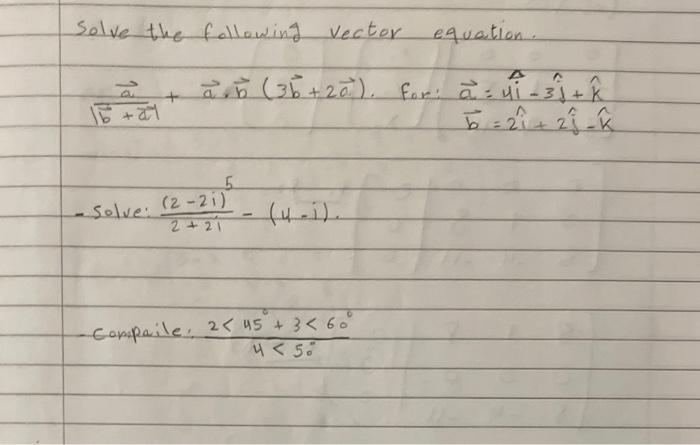 Solve the following vector equation.
a⃗ / |b⃗ + a⃗| + a⃗ . b⃗ (3b⃗ + 2a⃗). for: a⃗ = 4î - 3ĵ + k̂
b⃗ = 2î + 2ĵ - k̂
- Solve: (2 - 2i)^5 / 2 + 2i - (4 - i).
- Compaile: 2 < 45° + 3 < 60° / 4 < 50°